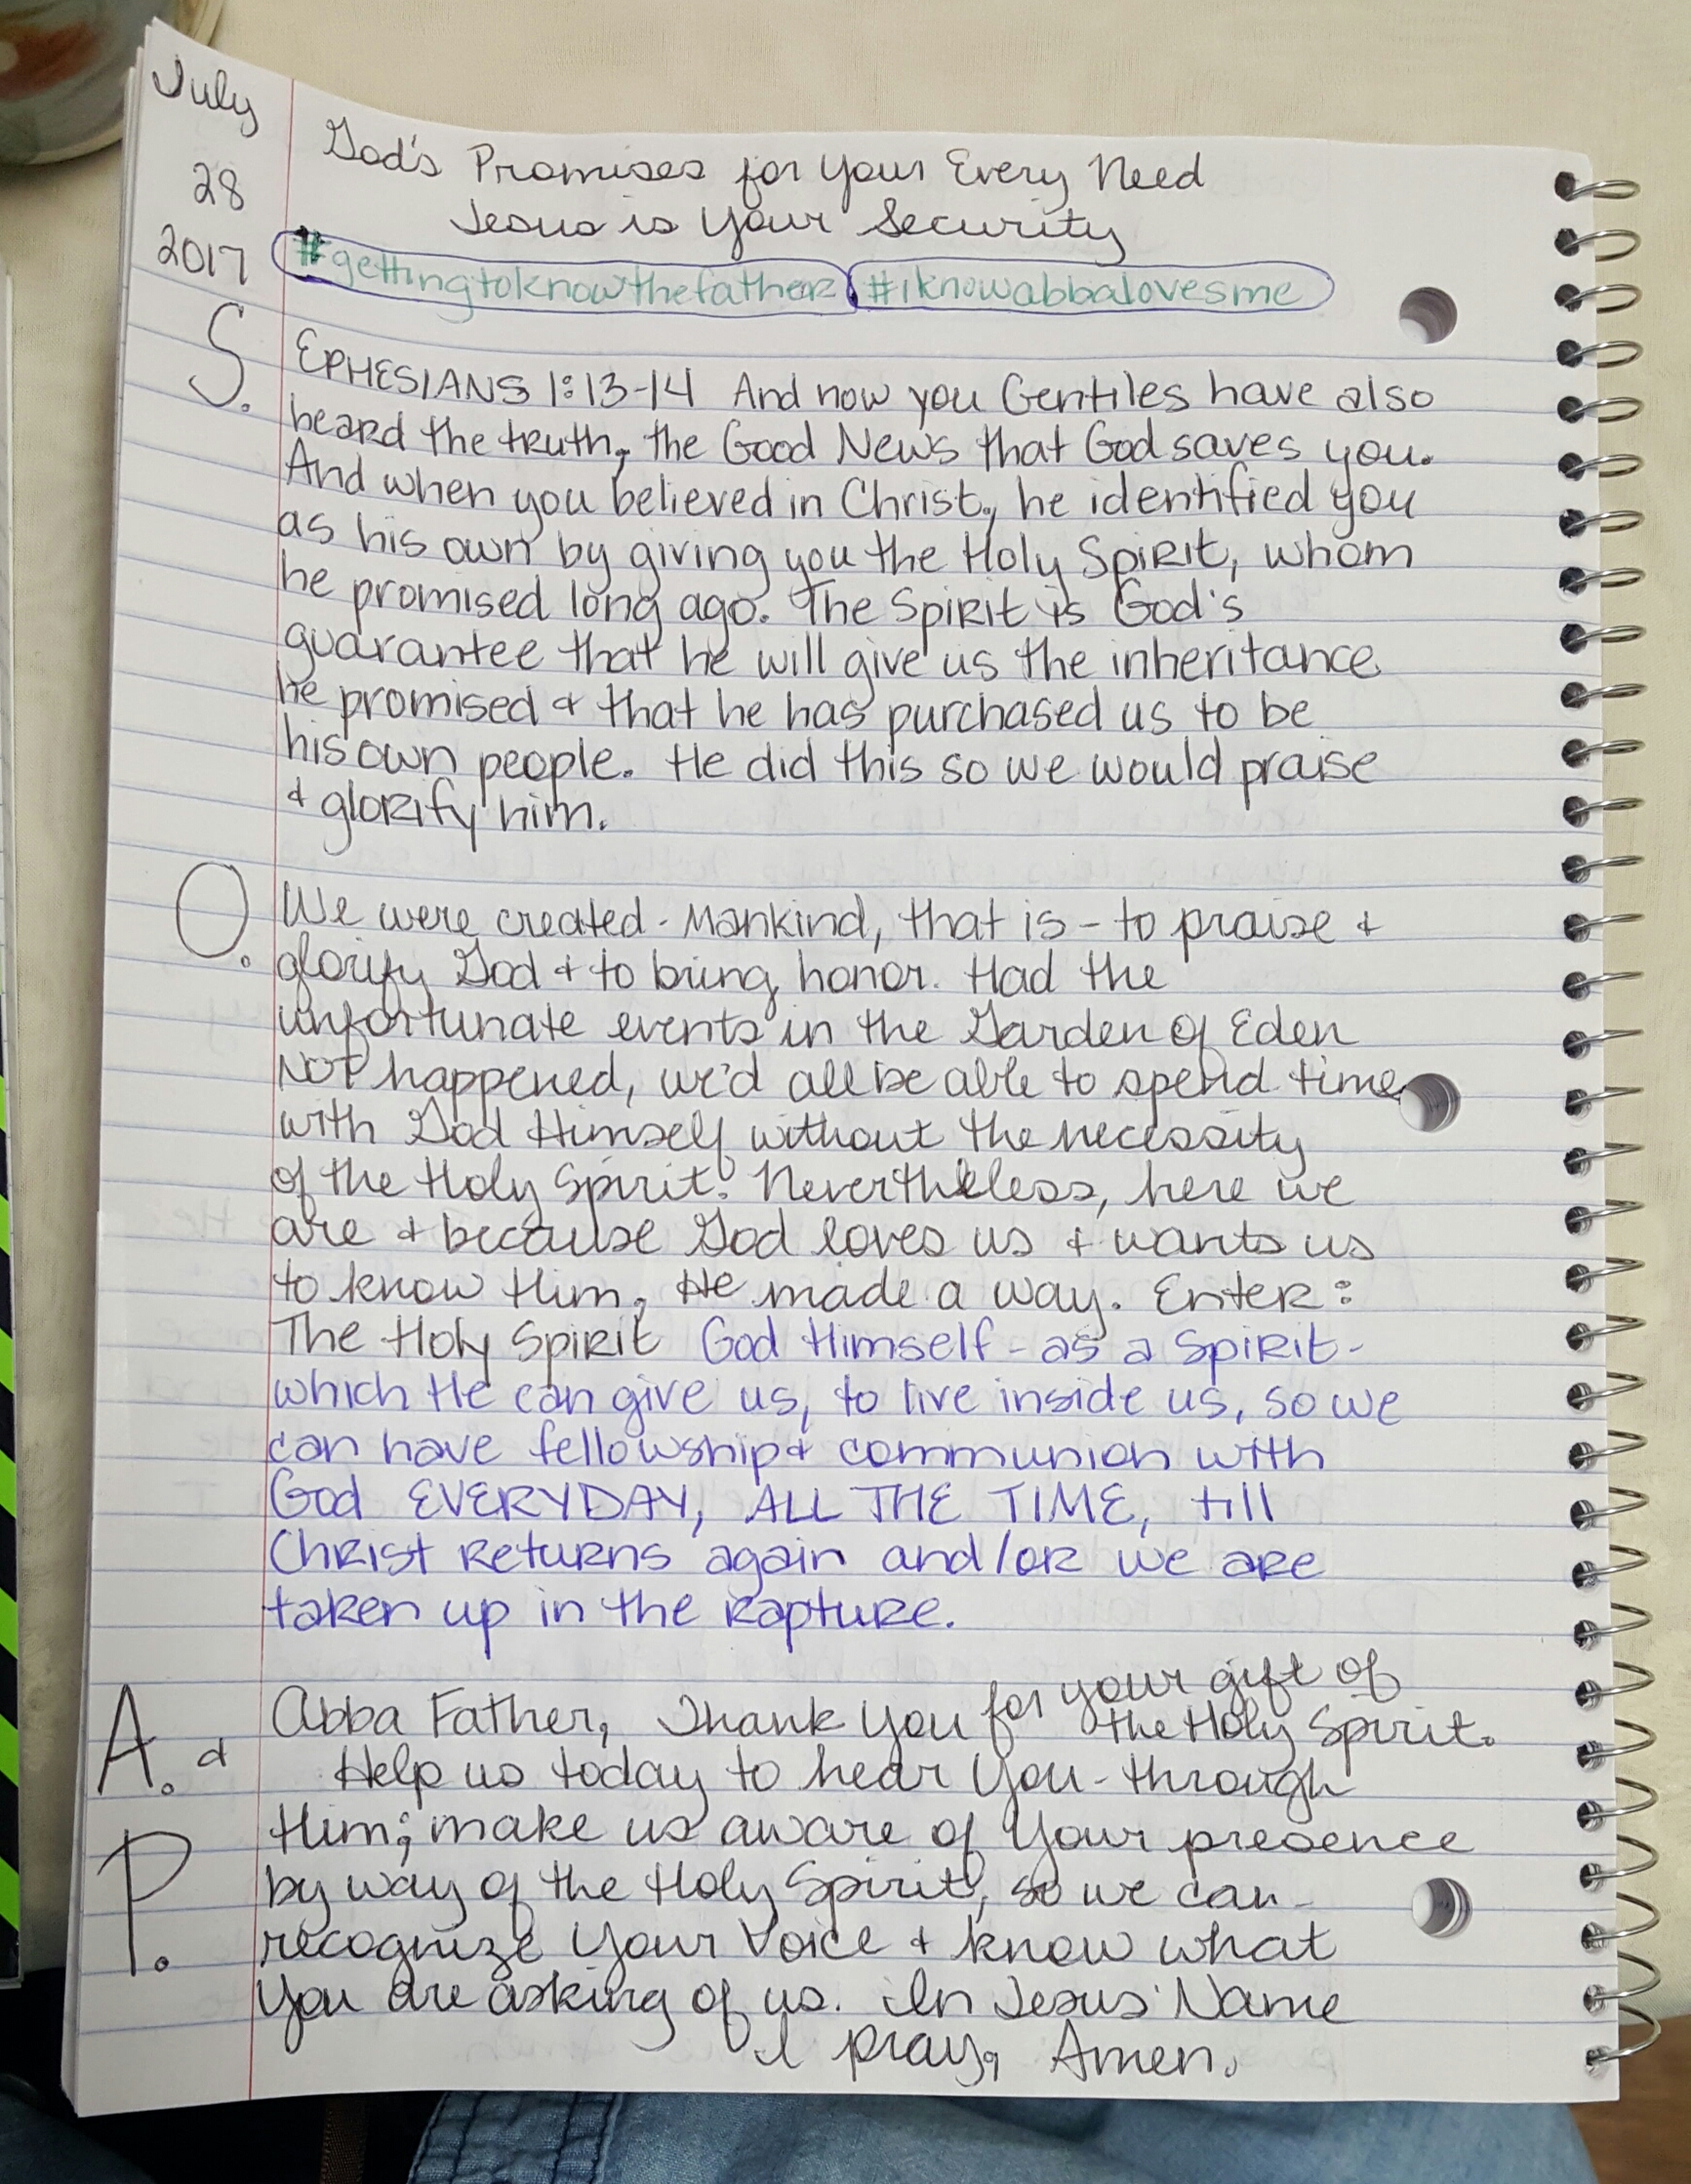 July
28
2017
God's Promises for Your Every Need
Jesus is Your Security
#gettingtoknowthefather #iknowabbalovesme
S. EPHESIANS 1:13-14 And now you Gentiles have also
heard the truth, the Good News that God saves you.
And when you believed in Christ, he identified you
as his own by giving you the Holy Spirit, whom
he promised long ago. The Spirit is God's
guarantee that he will give us the inheritance
he promised & that he has purchased us to be
his own people. He did this so we would praise
& glorify him.
O. We were created - Mankind, that is - to praise &
glorify God & to bring honor. Had the
unfortunate events in the Garden of Eden
NOT happened, we'd all be able to spend time
with God Himself without the necessity
of the Holy Spirit. Nevertheless, here we
are & because God loves us & wants us
to know Him, He made a way. Enter:
The Holy Spirit God Himself - as a Spirit -
which He can give us, to live inside us, so we
can have fellowship & communion with
God EVERYDAY, ALL THE TIME, till
Christ returns again and/or we are
taken up in the rapture.
A. & Abba Father, Thank You for your gift of
the Holy Spirit.
Help us today to hear You - through
P. Him; make us aware of Your presence
by way of the Holy Spirit, so we can
recognize Your Voice & know what
You are asking of us. In Jesus' Name
I pray, Amen.